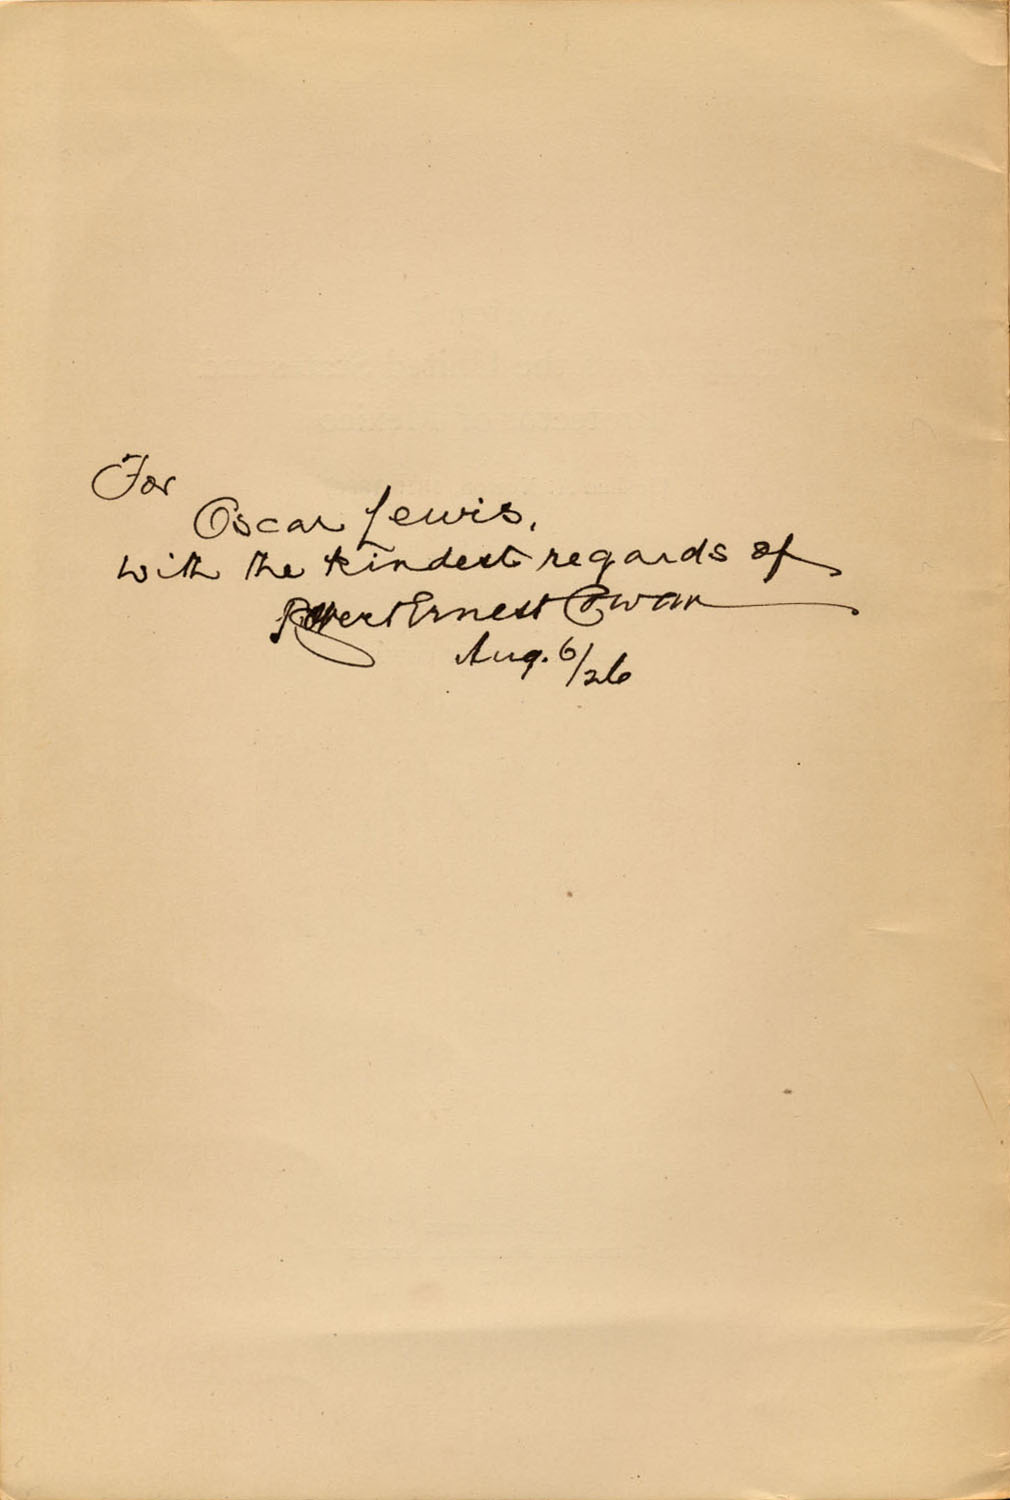 For
Oscar Lewis,
with the kindest regards of
Robert Ernest Cowan
Aug. 6/26